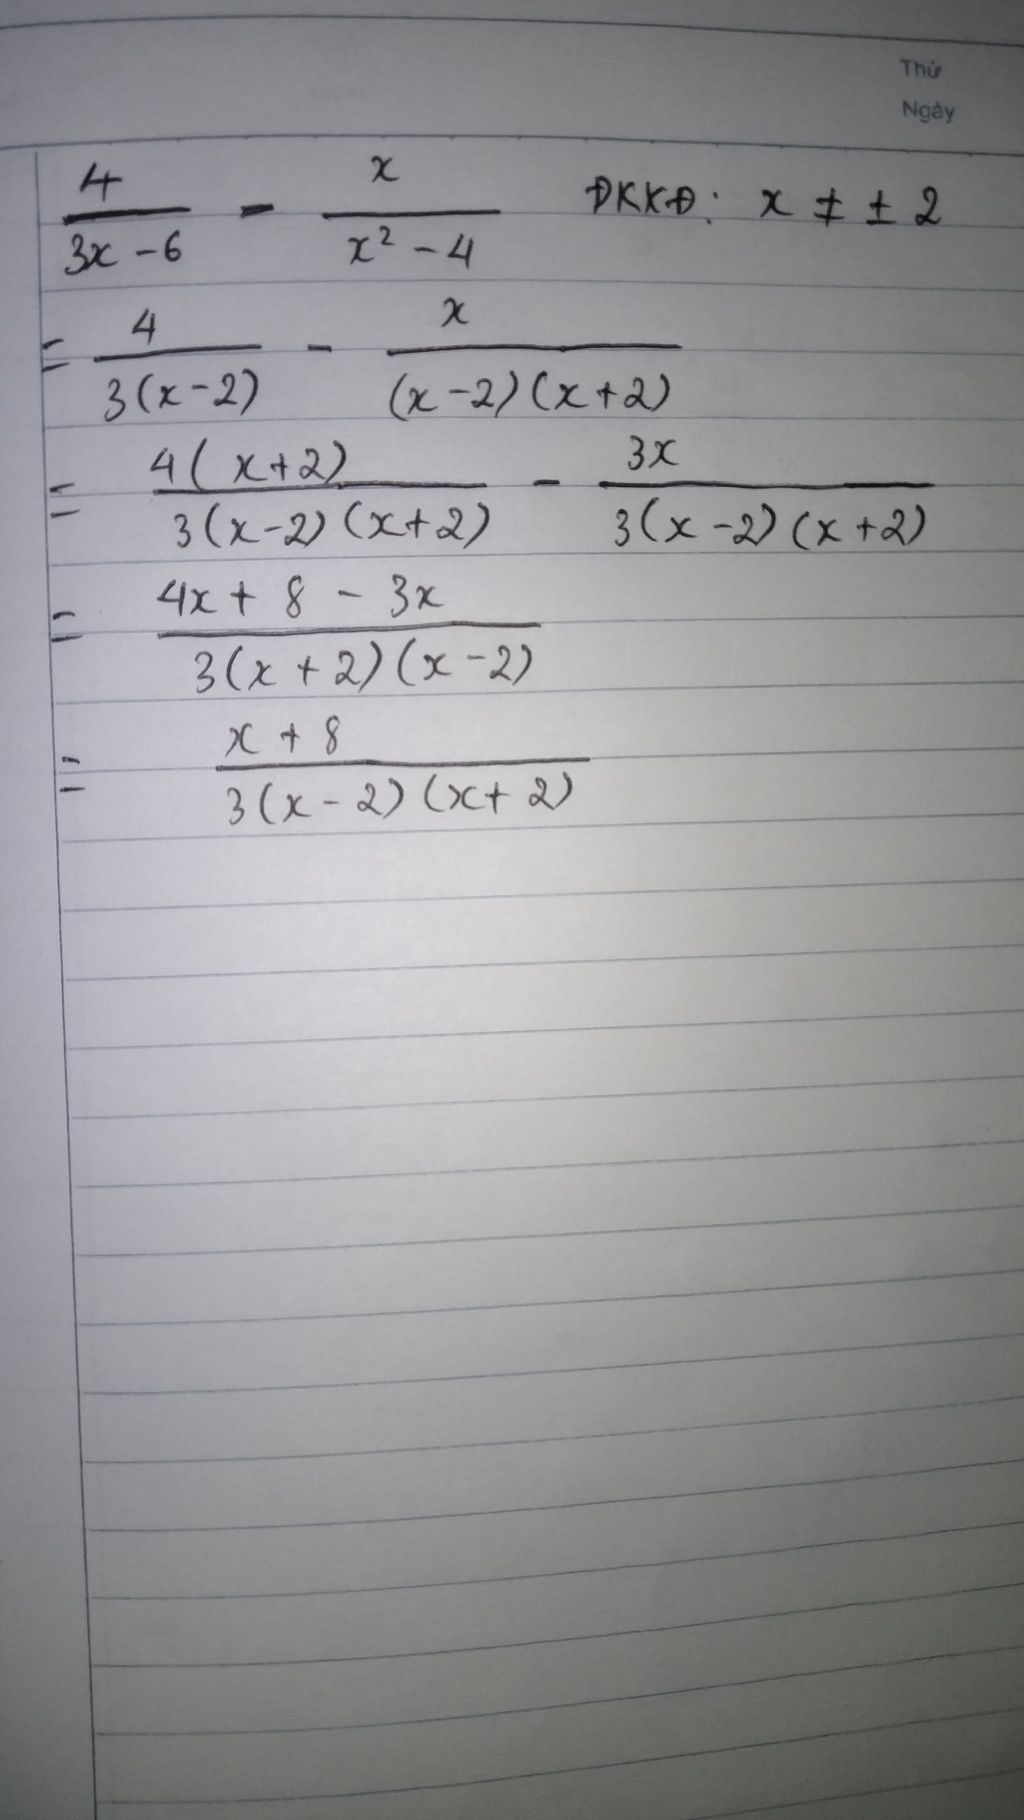 Thứ
Ngày
4/(3x - 6) - x/(x² - 4) ĐKXĐ: x ≠ ± 2
= 4/(3(x - 2)) - x/((x - 2)(x + 2))
= 4(x + 2)/(3(x - 2)(x + 2)) - 3x/(3(x - 2)(x + 2))
= (4x + 8 - 3x)/(3(x + 2)(x - 2))
= (x + 8)/(3(x - 2)(x + 2))